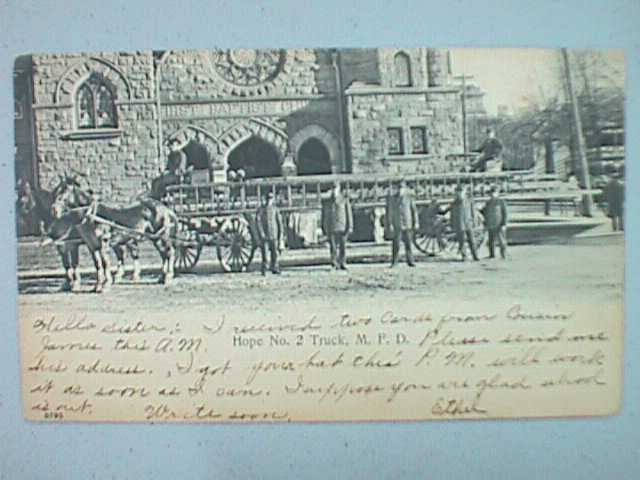 FIRST BAPTIST CH
Hello Sister,: I recieved two Cards from Cousin
James this A.M. Hope No. 2 Truck, M. F. D. Please send me
his address. I got your hat this P.M. will work
it as soon as I can. I suppose you are glad school
is out. Write soon.